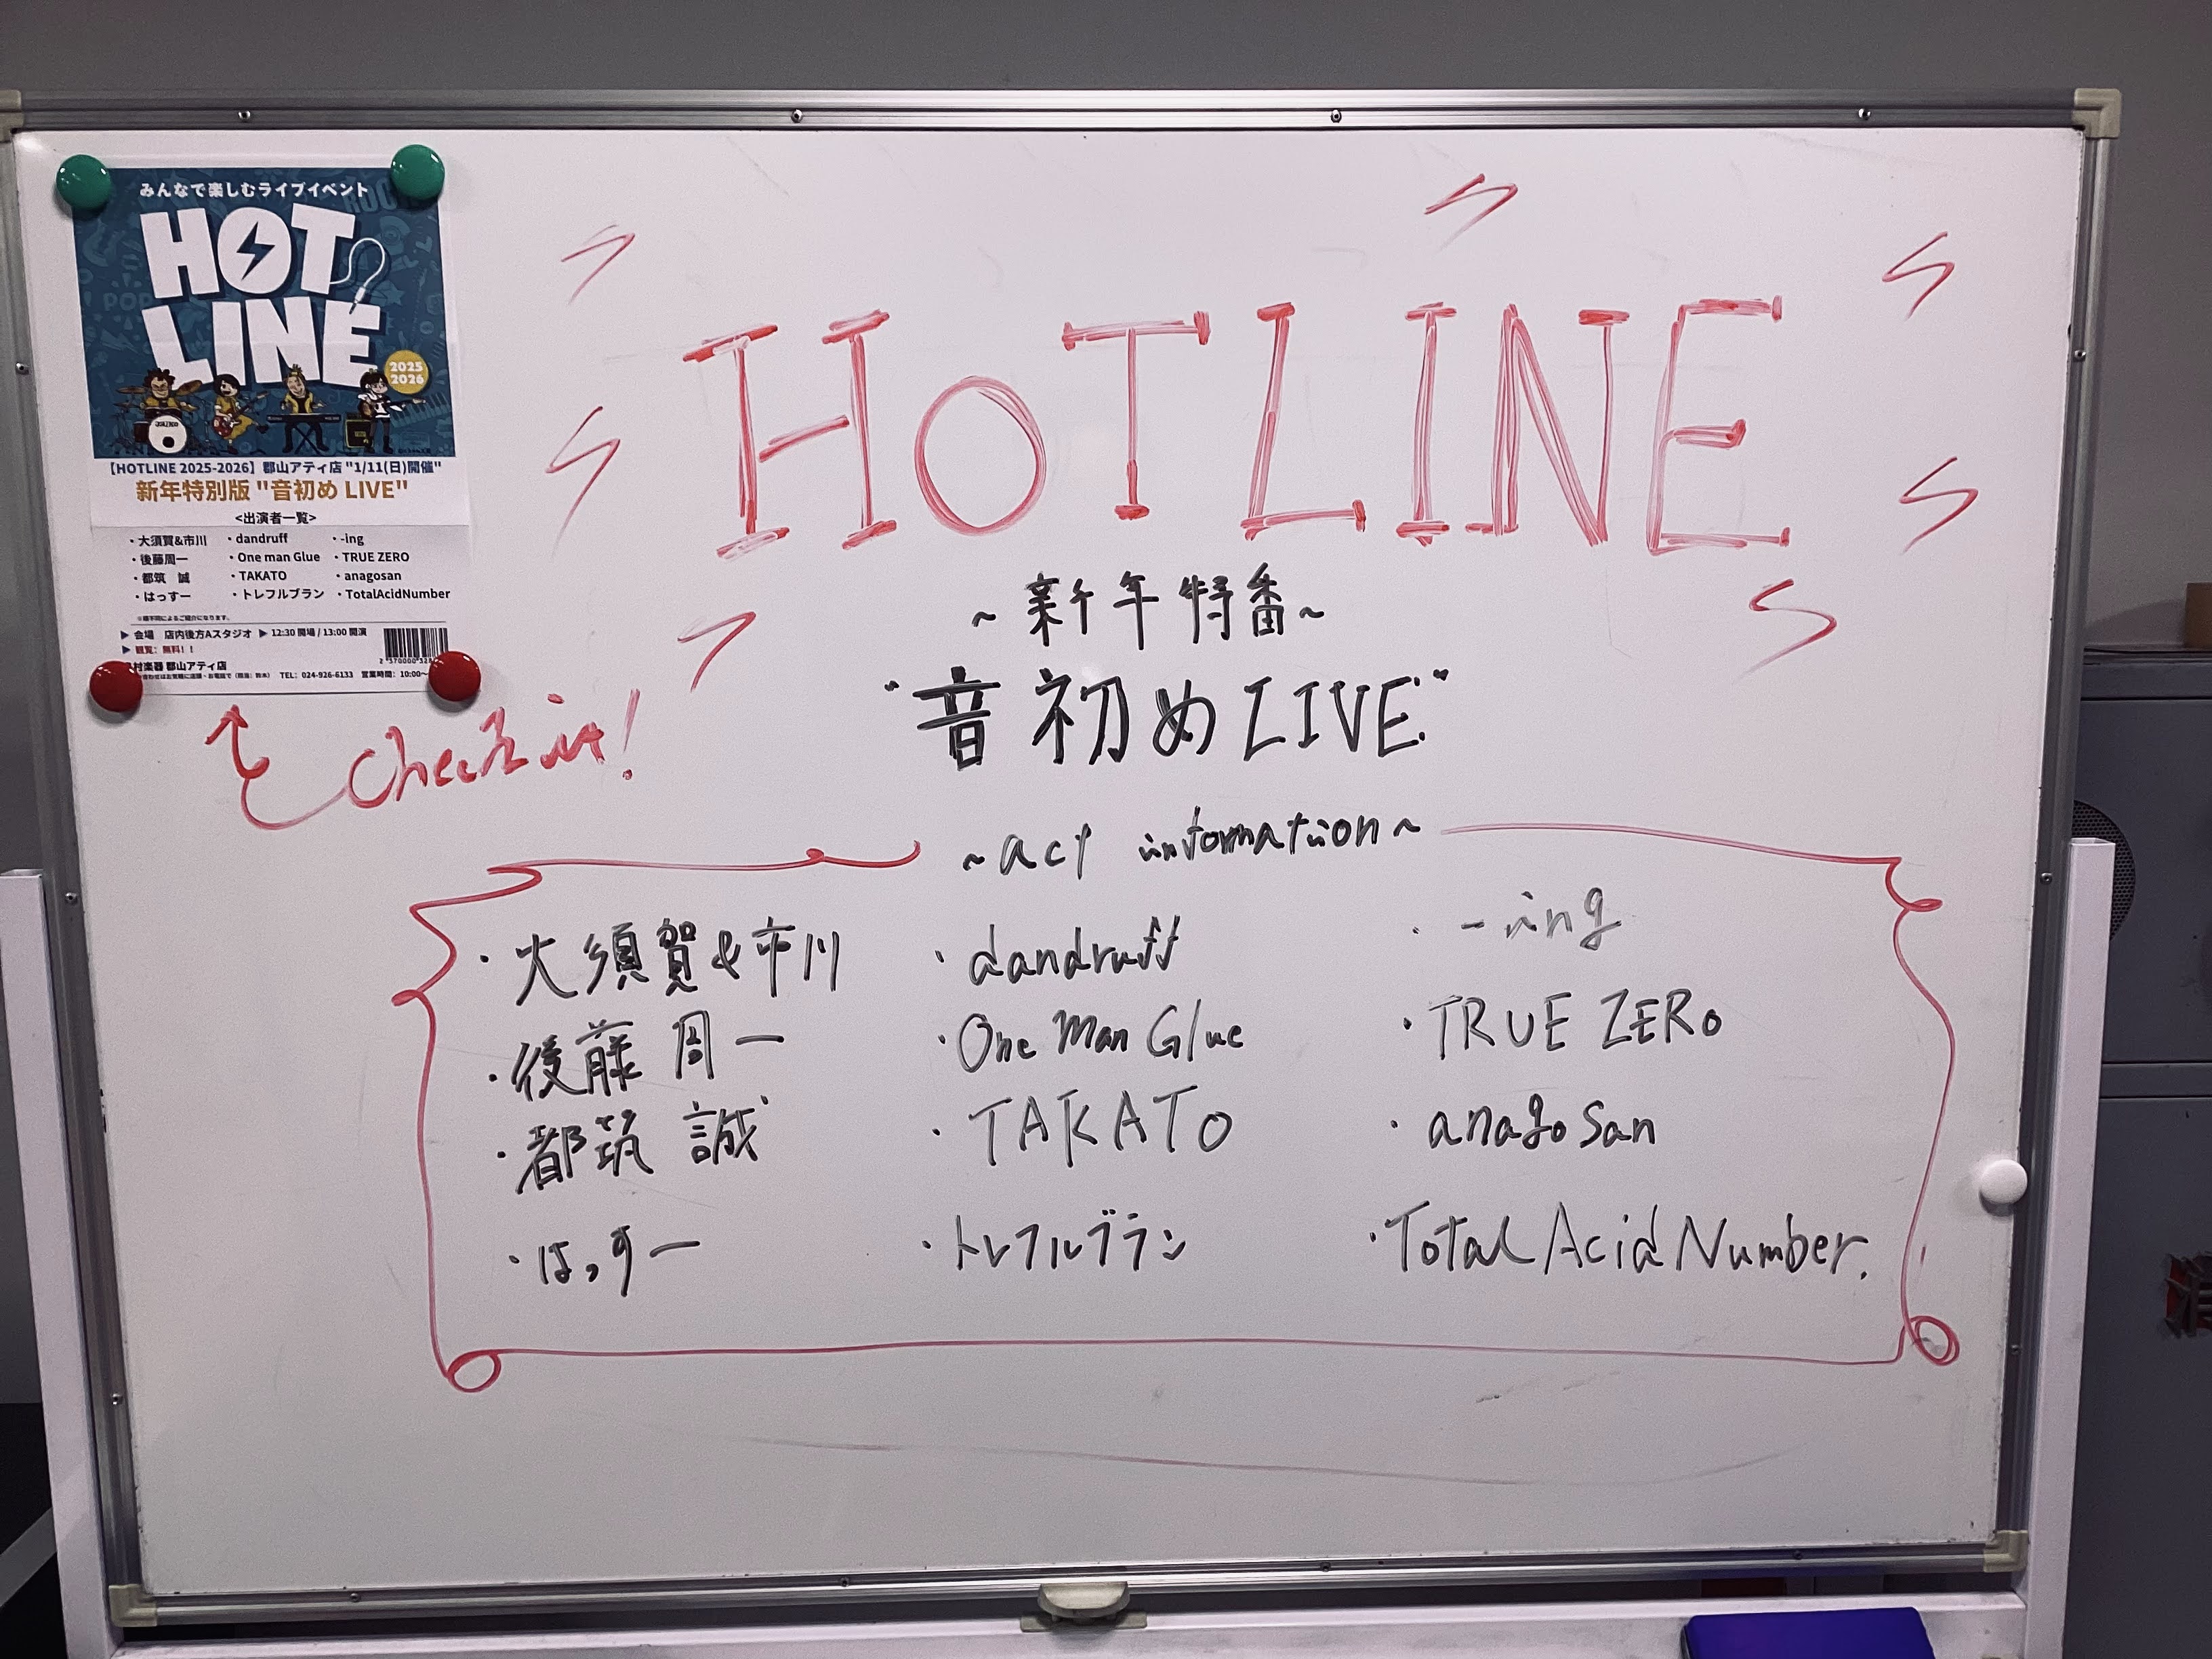 みんなで楽しむライブイベント
HOT
LINE
2025
2026
【HOTLINE 2025-2026】郡山アティ店 "1/11(日)開催"
新年特別版 "音初め LIVE"
<出演者一覧>
・大須賀&市川 ・dandruff ・-ing
・後藤周一 ・One man Glue ・TRUE ZERO
・都筑 誠 ・TAKATO ・anagosan
・はっすー ・トレフルブラン ・TotalAcidNumber
▶ 会場 店内後方Aスタジオ ▶ 12:30 開場 / 13:00 開演
▶ 観覧: 無料!!
村楽器 郡山アティ店
TEL: 024-926-6133 営業時間: 10:00~
Check it!
HOTLINE
~新年特番~
"音初めLIVE"
~act information~
・大須賀&市川 ・dandruff ・-ing
・後藤 周一 ・One Man Glue ・TRUE ZERO
・都筑 誠 ・TAKATO ・anagosan
・はっすー ・トレフルブラン ・Total Acid Number.